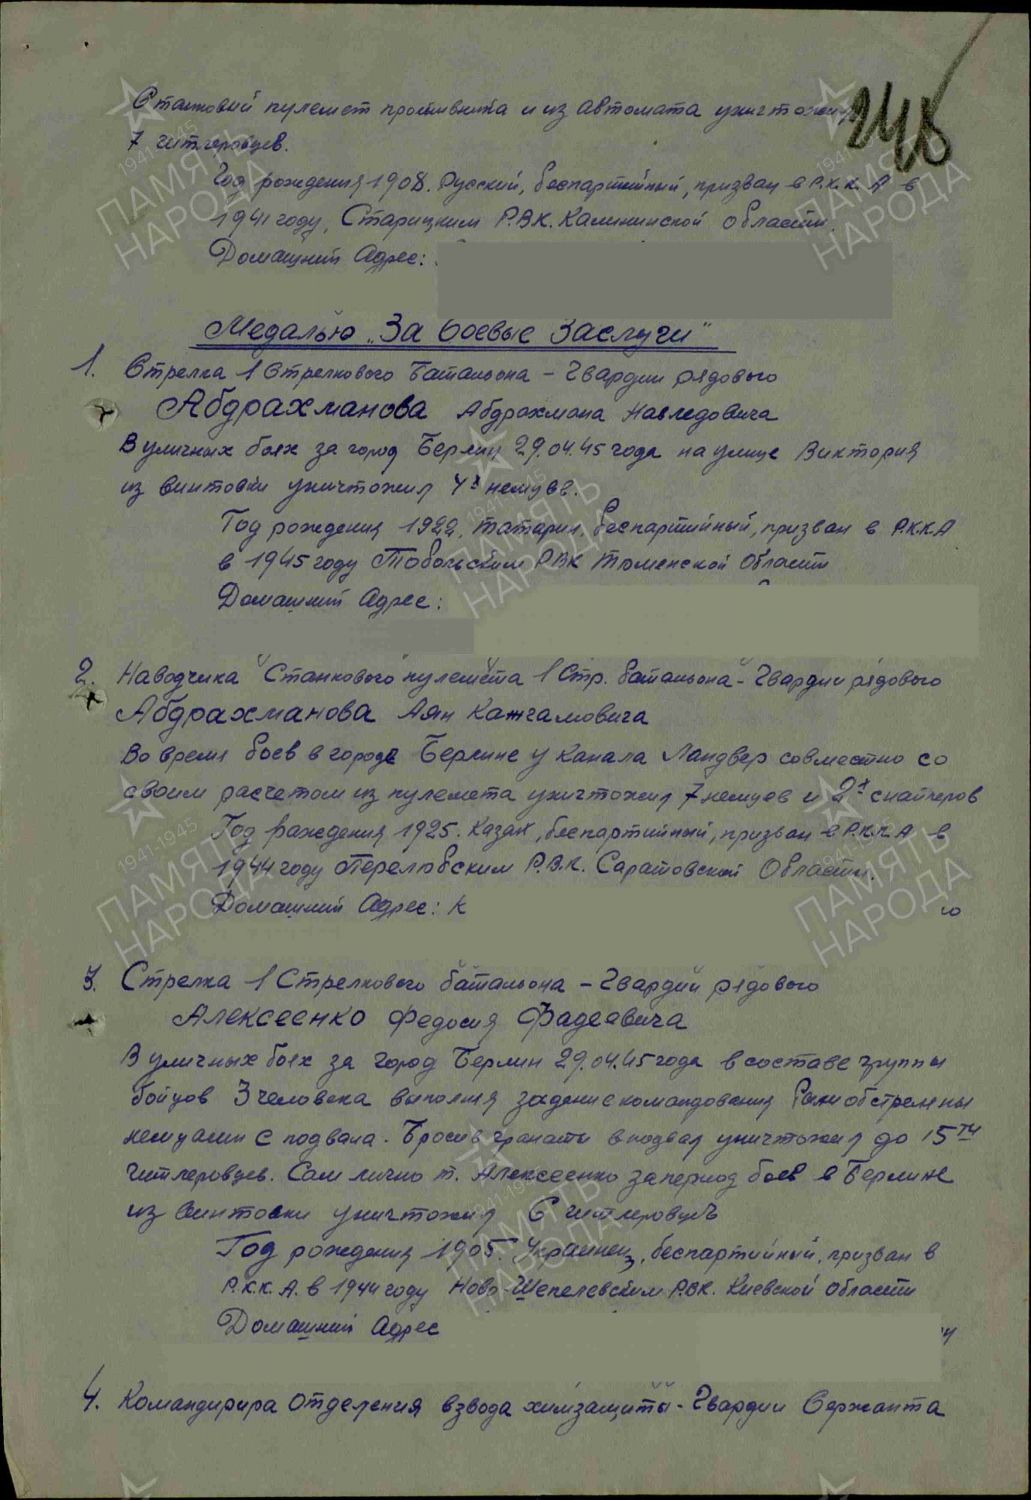 248
Станковый пулемет противника и из автомата уничтожил
7 гитлеровцев.
Год рождения 1908. Русский, беспартийный, призван в Р.К.К.А в
1941 году, Старицким Р.В.К. Калининской области.
Домашний Адрес:
Медалью „За боевые Заслуги"
1. Стрелка 1 Стрелкового Батальона – Гвардии рядового
Абдрахманова Абдрахмана
В уличных боях за город Берлин 29.04.45 года на улице Виктория
из винтовки уничтожил 4х немцев.
Год рождения 1922, татарин, беспартийный, призван в РККА
в 1945 году Тобольским РВК Тюменской Области
Домашний Адрес:
2. Наводчика "Станкового" пулемёта 1 Стр. батальона – Гвардии рядового
Абдрахманова Аян
Во время боев в городе Берлине у Канала Ландвер совместно со
своим расчетом из пулемета уничтожил 7 немцев и 2х снайперов
Год рождения 1925. Казах, беспартийный, призван в Р.К.К.А в
1944 году Перелюбским Р.В.К. Саратовской Области.
Домашний Адрес: К
ю
3. Стрелка 1 Стрелкового батальона – Гвардии рядового
Алексеенко Федосия Фадеавича
В уличных боях за город Берлин 29.04.45 года в составе группы
бойцов 3 человека выполняя задание командования были обстреляны
немцами с подвала. Бросив гранаты в подвал уничтожил до 15ти
гитлеровцев. Сам лично т. Алексеенко за период боев в Берлине
из винтовки уничтожил 6 гитлеровцев
Год рождения 1905. Украинец, беспартийный, призван в
Р.К.К.А. в 1944 году Ново-Шепелевским РВК. Киевской области
Домашний Адрес
4. Командирира отделения взвода химзащиты – Гвардии Сержанта
ПАМЯТЬ НАРОДА
1941-1945
ПАМЯТЬ НАРОДА
1941-1945
ПАМЯТЬ НАРОДА
1941-1945
ПАМЯТЬ НАРОДА
1941-1945
ПАМЯТЬ НАРОДА
1941-1945
ПАМЯТЬ НАРОДА
1941-1945